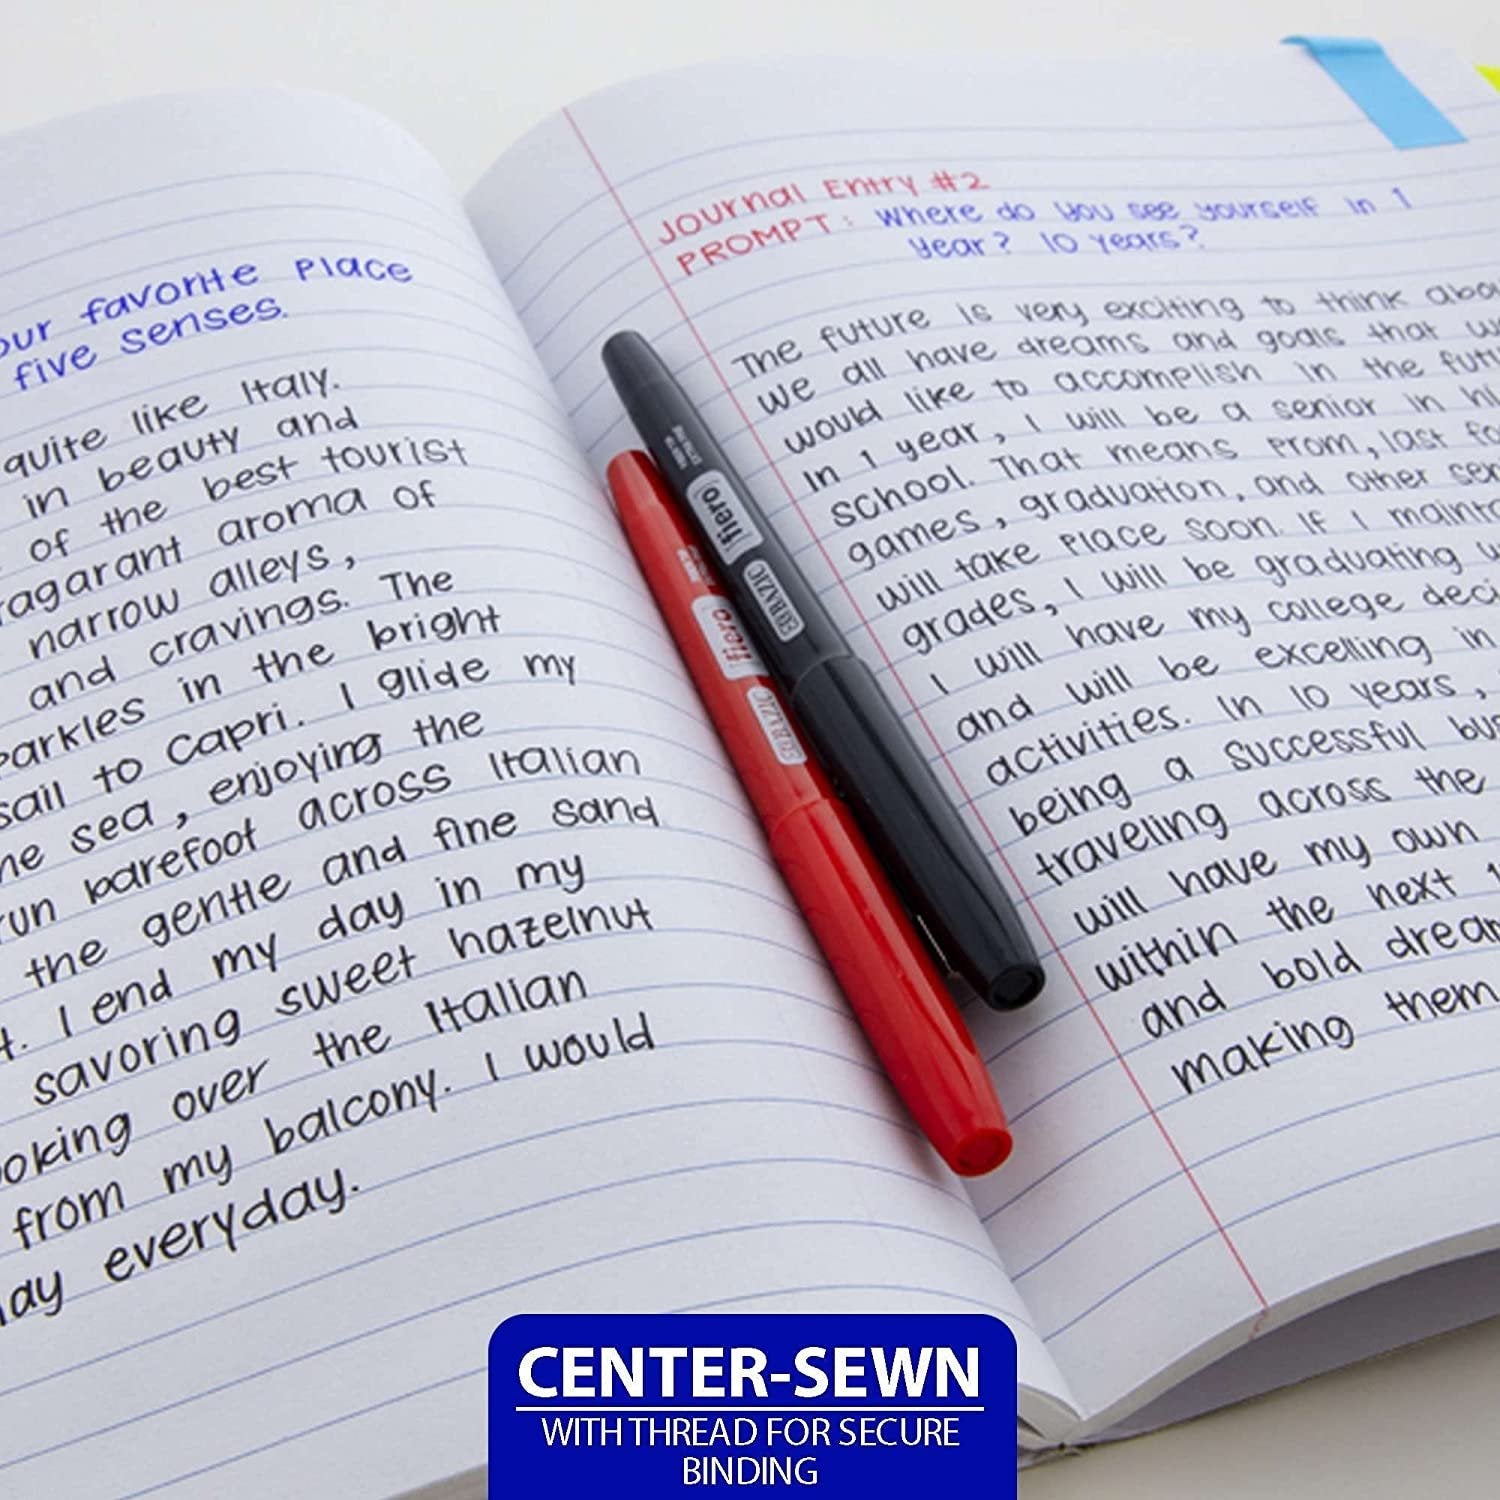 our favorite Place
five senses.
quite like Italy.
in beauty and
of the best tourist
ragarant aroma of
narrow alleys,
and cravings. The
parkles in the bright
sail to Capri. I glide my
he sea, enjoying the
run barefoot across Italian
the gentle and fine sand
t. I end my day in my
savoring sweet hazelnut
ooking over the Italian
from my balcony. I would
ay everyday.
Journal Entry #2
PROMPT: Where do you see yourself in 1
year? 10 years?
The future is very exciting to think abou
we all have dreams and goals that w
would like to accomplish in the futu
In 1 year, I will be a senior in hi
school. That means Prom, last fo
games, graduation, and other sen
will take place soon. If I mainta
grades, I will be graduating w
I will have my college deci
and will be excelling in
activities. In 10 years,
being a successful bus
traveling across the
will have my own
within the next 1
and bold drear
making them
fiero
BAZIC
fiero
BAZIC
CENTER-SEWN
WITH THREAD FOR SECURE
BINDING